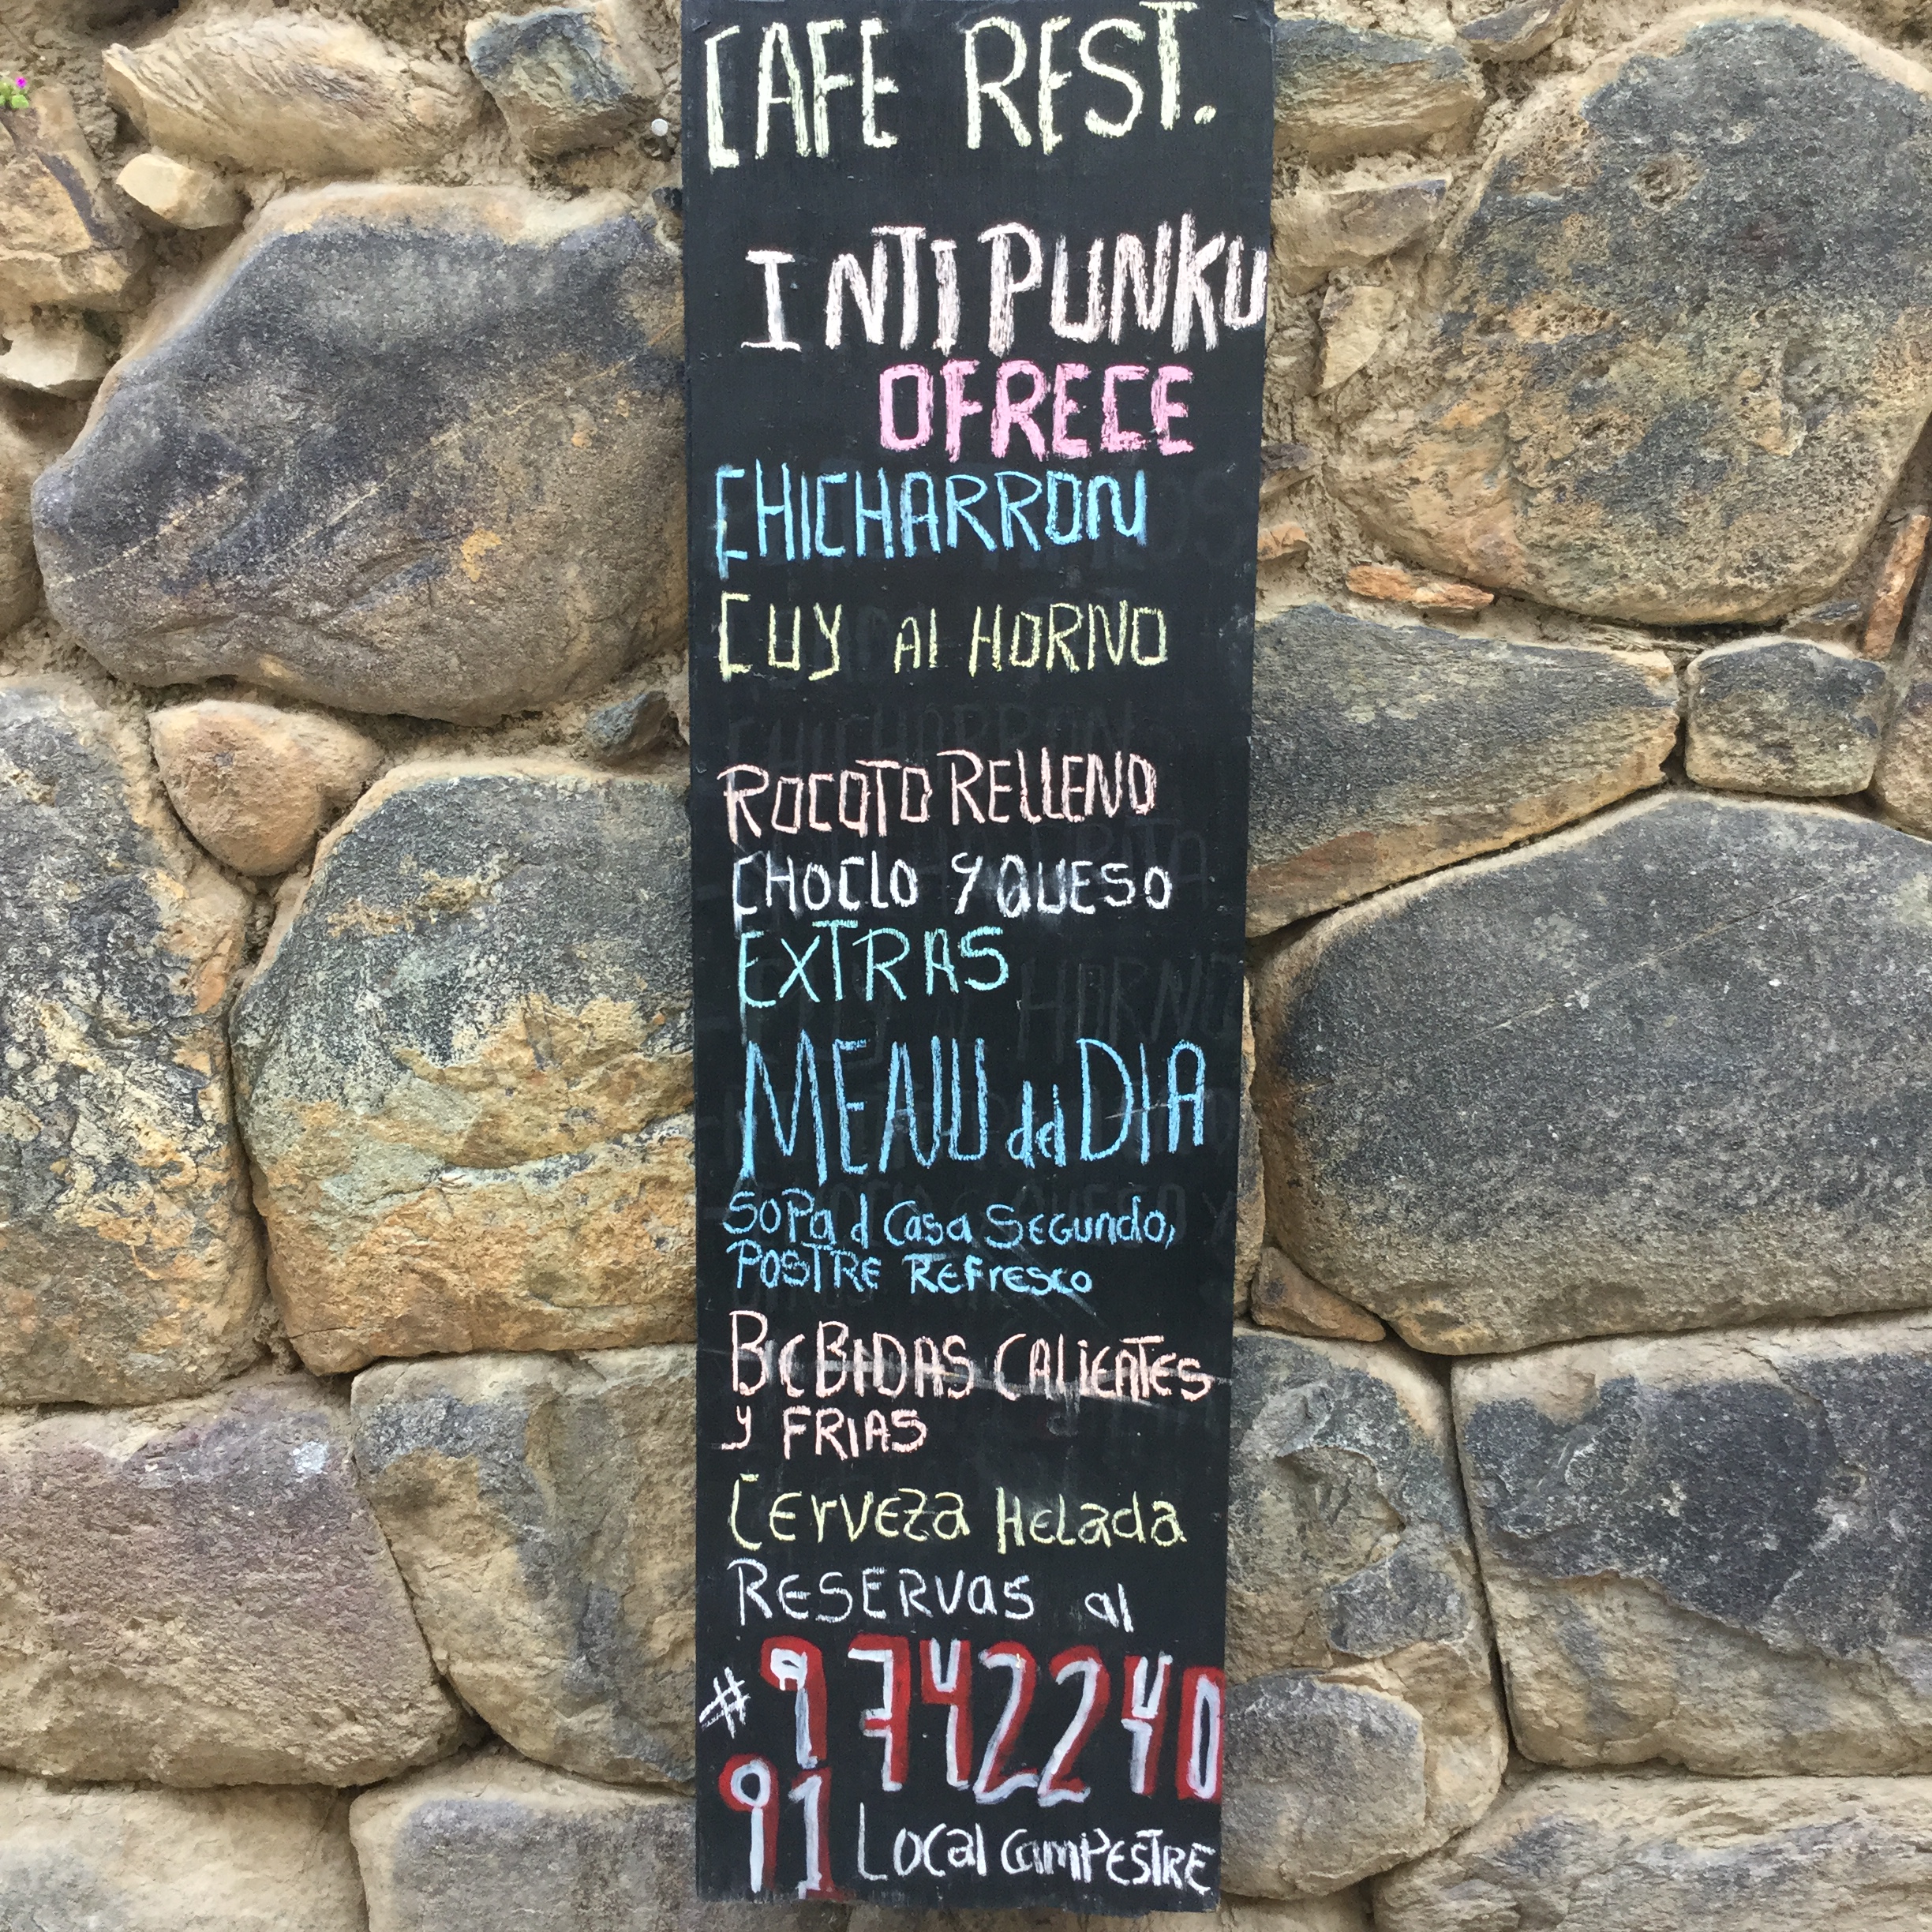 CAFE REST.
INTI PUNKU
OFRECE
CHICHARRON
CUY Al HORNO
ROCOTO RELLENO
CHOClO Y QUESO
EXTRAS
MENU del DIA
SOPa d Casa SEGUndo,
POSTRE REFresco
BEBIDAS CALIENTES
y FRIAS
CErvEZa HELada
RESERVaS al
# 9742240
91 LOCal CamPESTRE